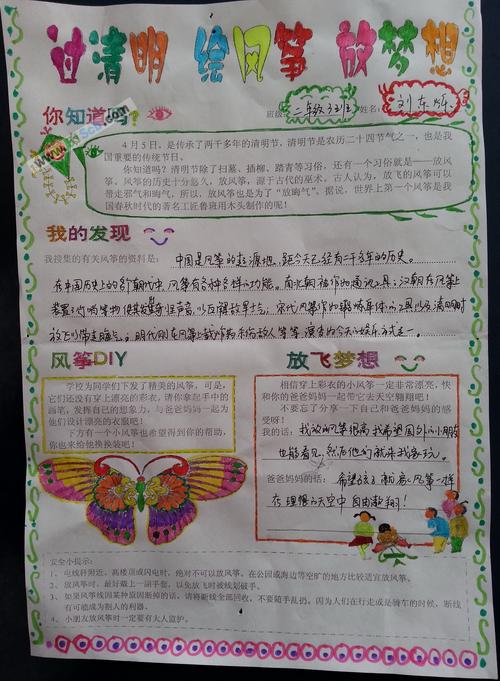 过清明 绘风筝 放梦想
你知道吗?
班级 二年级3班 姓名: 刘东
4月5日,是传承了两千多年的清明节,清明节是农历二十四节气之一,也是我
国重要的传统节日。
你知道吗?清明节除了扫墓、插柳、踏青等习俗,还有一个习俗就是——放风
筝。风筝的历史十分悠久,放风筝,源于古代的巫术。古人认为,放飞的风筝可以
带走邪气和晦气,所以,放风筝也是为了“放晦气”。据说,世界上第一个风筝是我
国春秋时代的著名工匠鲁班用木头制作的呢!
我的发现
我搜集的有关风筝的资料是: 中国是风筝的起源地,距今天已经有二千多年的历史。
在中国历史上的各个朝代中,风筝有各种各样的功能。南北朝被作为通讯工具;汉朝在风筝上
装置
放飞以带走晦气;明代
风筝DIY
放飞梦想
学校为同学们下发了精美的风筝,可是,
它们还没有穿上漂亮的彩衣,请你拿起手中的
画笔,发挥自己的想象力,与爸爸妈妈一起为
他们设计漂亮的衣服吧!
下方有一个小风筝也希望得到你的帮助,
你也来给他换换装吧!
相信穿上彩衣的小风筝一定非常漂亮,快
和你的爸爸妈妈一起带它去天空翱翔吧!
不要忘了分享一下自己和爸爸妈妈的感
受呀!
我的话: 我放的风筝很高,我希望国外的小朋友
也能看见,然后他们就来找我玩。
爸爸妈妈的话: 希望孩子像风筝一样
在理想的天空中自由翱翔!
安全小提示:
1、电线杆附近、高楼顶或闪电时,绝对不可以放风筝。在公园或海边等空旷的地方比较适宜放风筝。
2、放风筝时,最好戴上一副手套,以免放飞时被线划破手。
3、如果风筝线因某种原因断掉的话,请将断线全部回收,不要随手乱扔。因为人们在行走或是骑车的时候,断线
有可能成为割人的利器。
4、小朋友放风筝时一定要有大人监护。